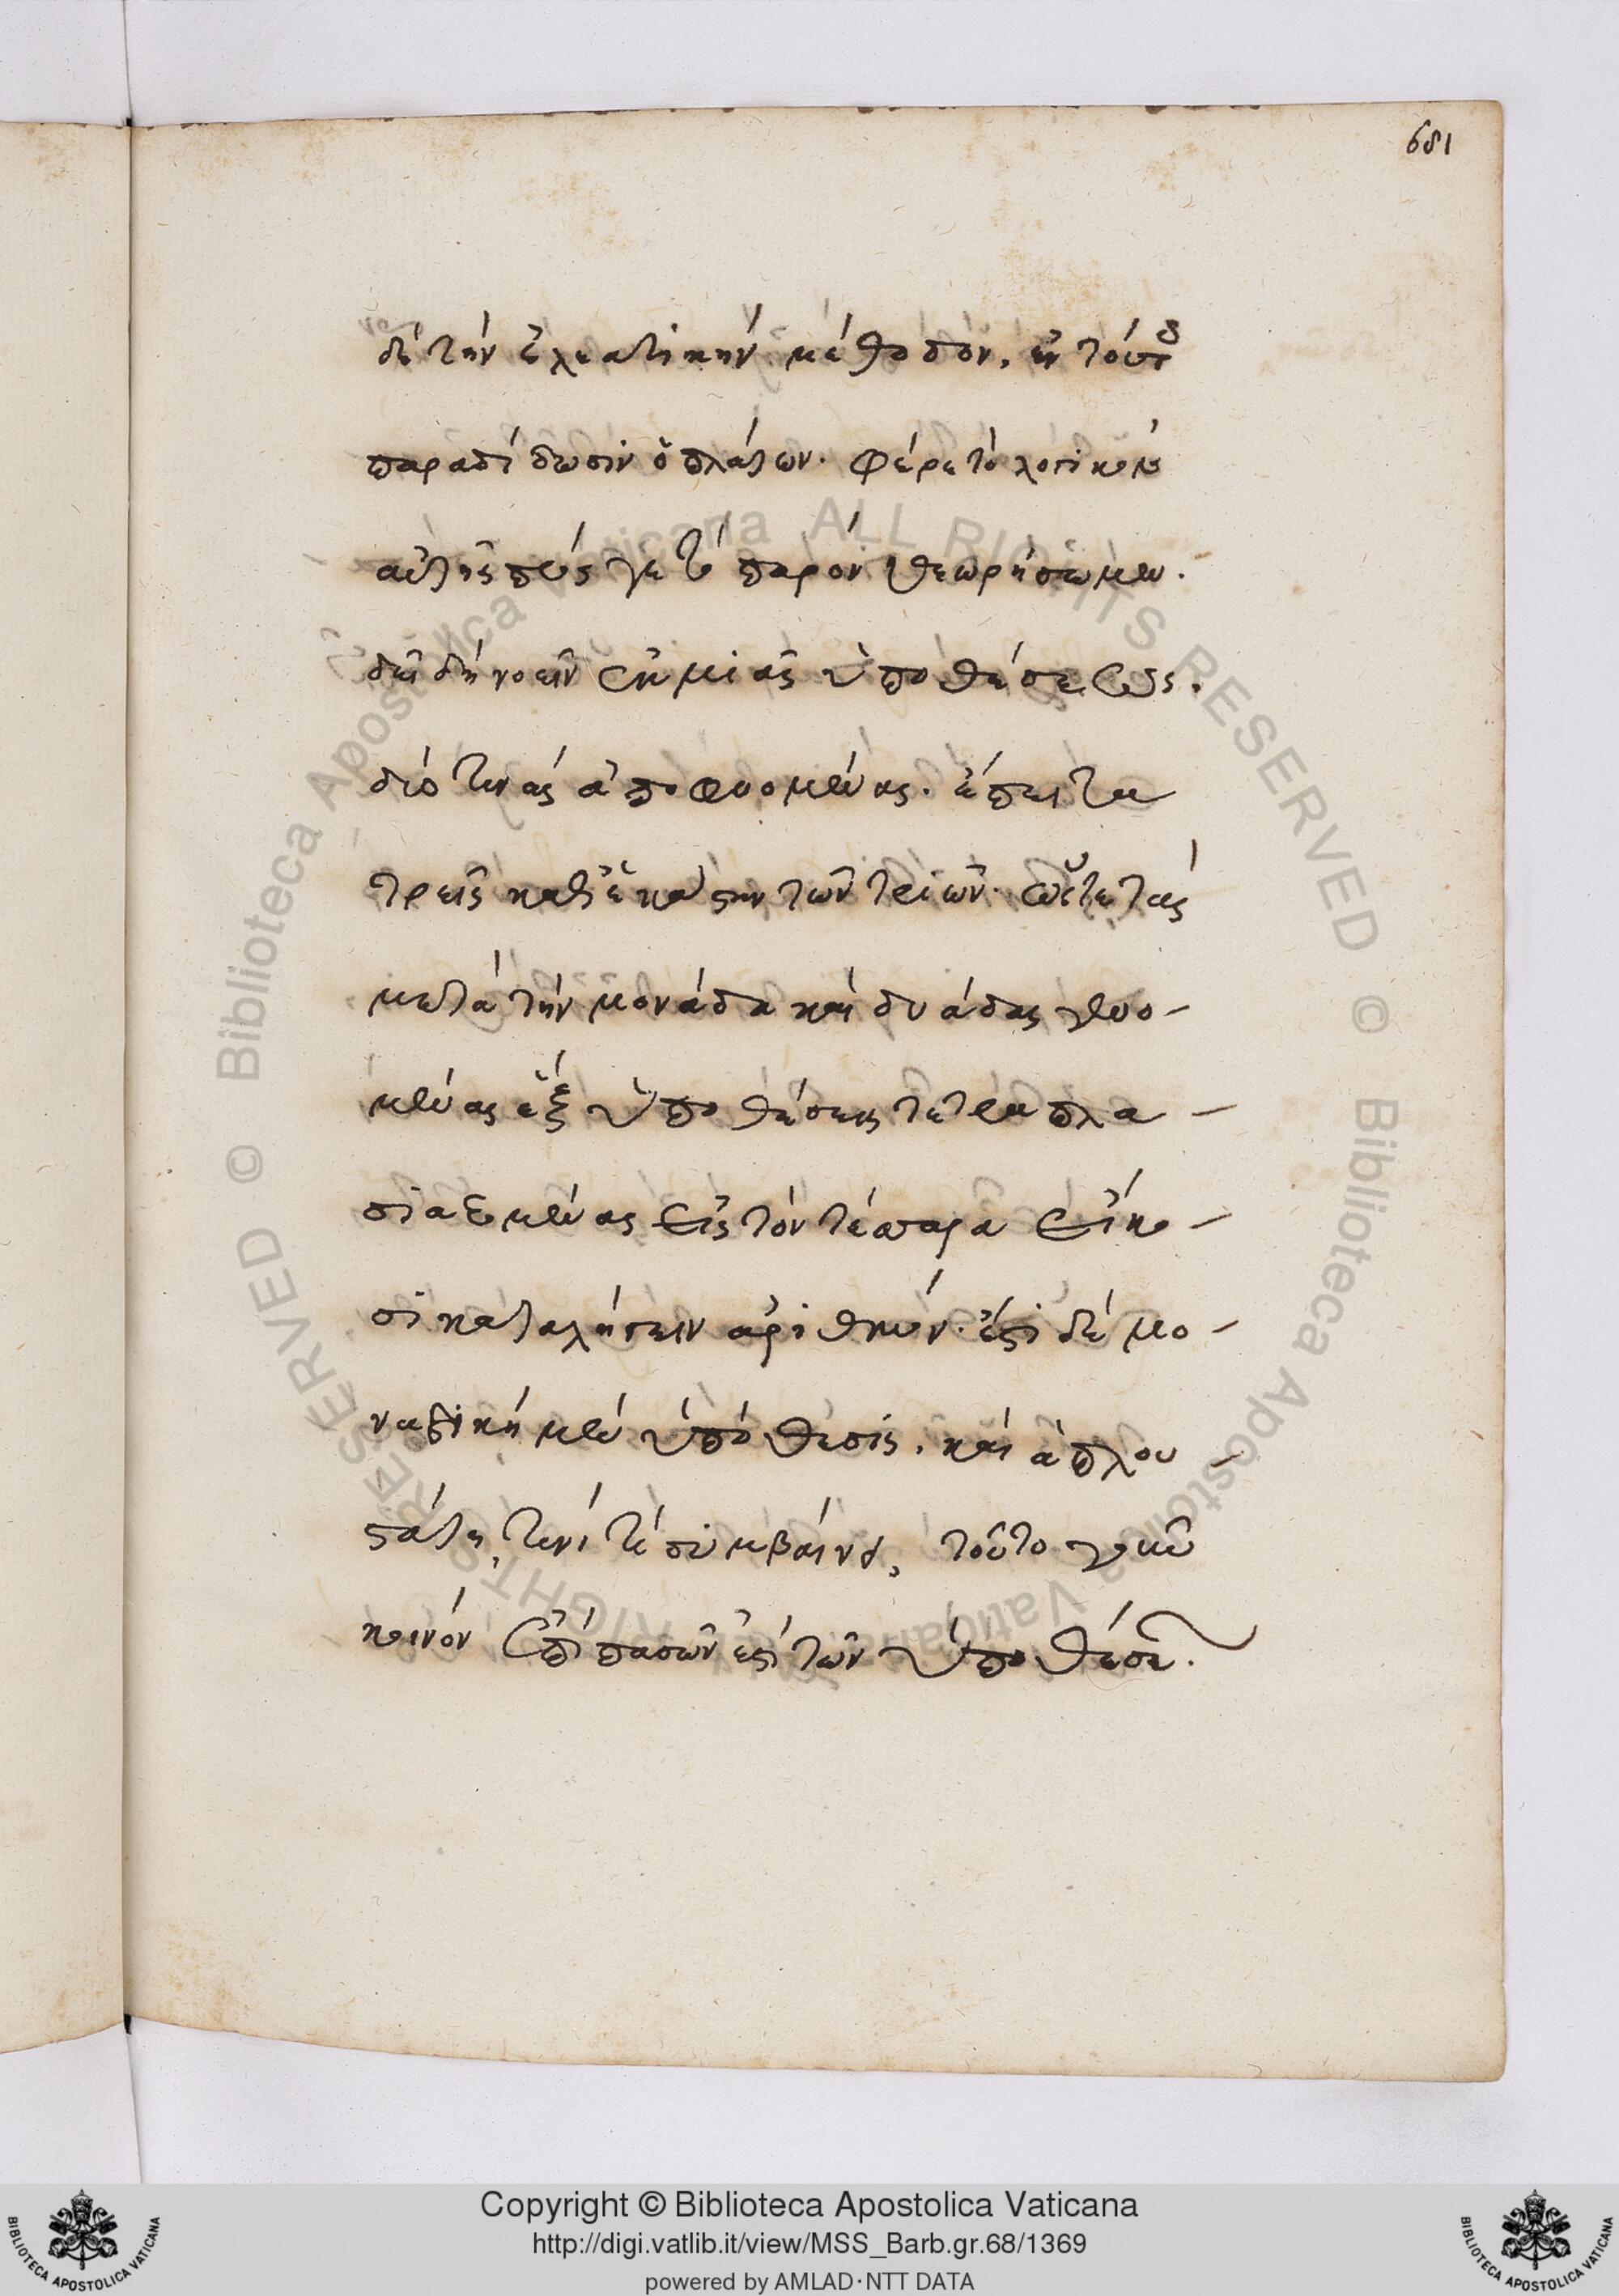 681
δὲ τὴν ἐλεατικὴν μέθοδον, ἐν τούτοις
παραδίδωσιν ὁ πλάτων. φέρε τὸ λογικὸν
αὐτῆς πῶς γε τὸ παρὸν θεωρήσωμεν.
δεῖ δὴ νοεῖν ἐκ μιᾶς ὑποθέσεως.
δύο τινὰς ἀποφυομένας. ἔπειτα
τρεῖς καθ' ἑκάστην τῶν τριῶν. ὥστε τὰς
μετὰ τὴν μονάδα καὶ δυάδας γενο-
μένας ἓξ ὑποθέσεις τετραπλα-
σιαζομένας εἰς τὸν τέσσαρα εἴκο-
σι καταλήγειν ἀριθμόν. ἔστι δὲ μο-
ναδικὴ μὲν ὑπόθεσις, καὶ ἁπλου-
στάτη, τινί τί συμβαίνει, τοῦτο γὰρ οὖν
κοινὸν ἐπὶ πασῶν ἐστὶ τῶν ὑποθέσεων.
Copyright © Biblioteca Apostolica Vaticana
http://digi.vatlib.it/view/MSS_Barb.gr.68/1369
powered by AMLAD·NTT DATA
BIBLIOTECA APOSTOLICA VATICANA
BIBLIOTECA APOSTOLICA VATICANA
© Biblioteca Apostolica Vaticana ALL RIGHTS RESERVED
© Biblioteca Apostolica Vaticana ALL RIGHTS RESERVED